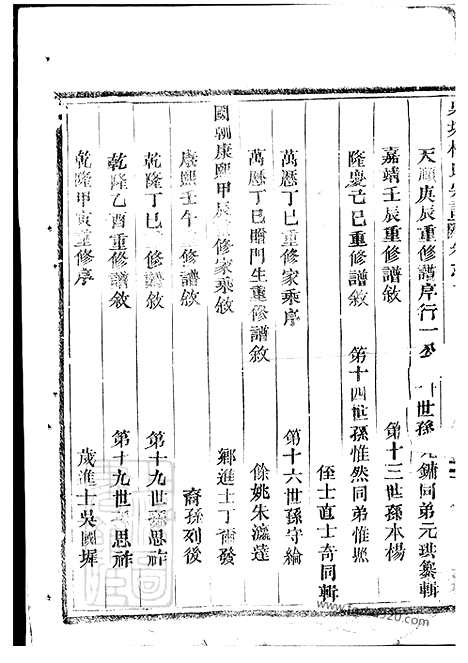 天順庚辰重修譜序行一公 十世孫元鏞同弟元珙纂輯
嘉靖壬辰重修譜敘 第十三世孫本楊
隆慶己巳重修譜敘 第十四世孫惟然同弟惟熈
侄士直士奇同輯
萬曆丁巳重修家乘序 第十六世孫守綸
萬曆丁巳贈門生重修譜敘 餘姚朱瀛達
國朝康熙甲辰重修家乘敘 鄉進士丁爾發
康熙壬午 修譜敘 裔孫列後
乾隆丁巳 修譜敘 第十九世孫思祚
乾隆乙酉重修譜敘 第十九世 思祚
乾隆甲寅重修序 歲進士吳國墀